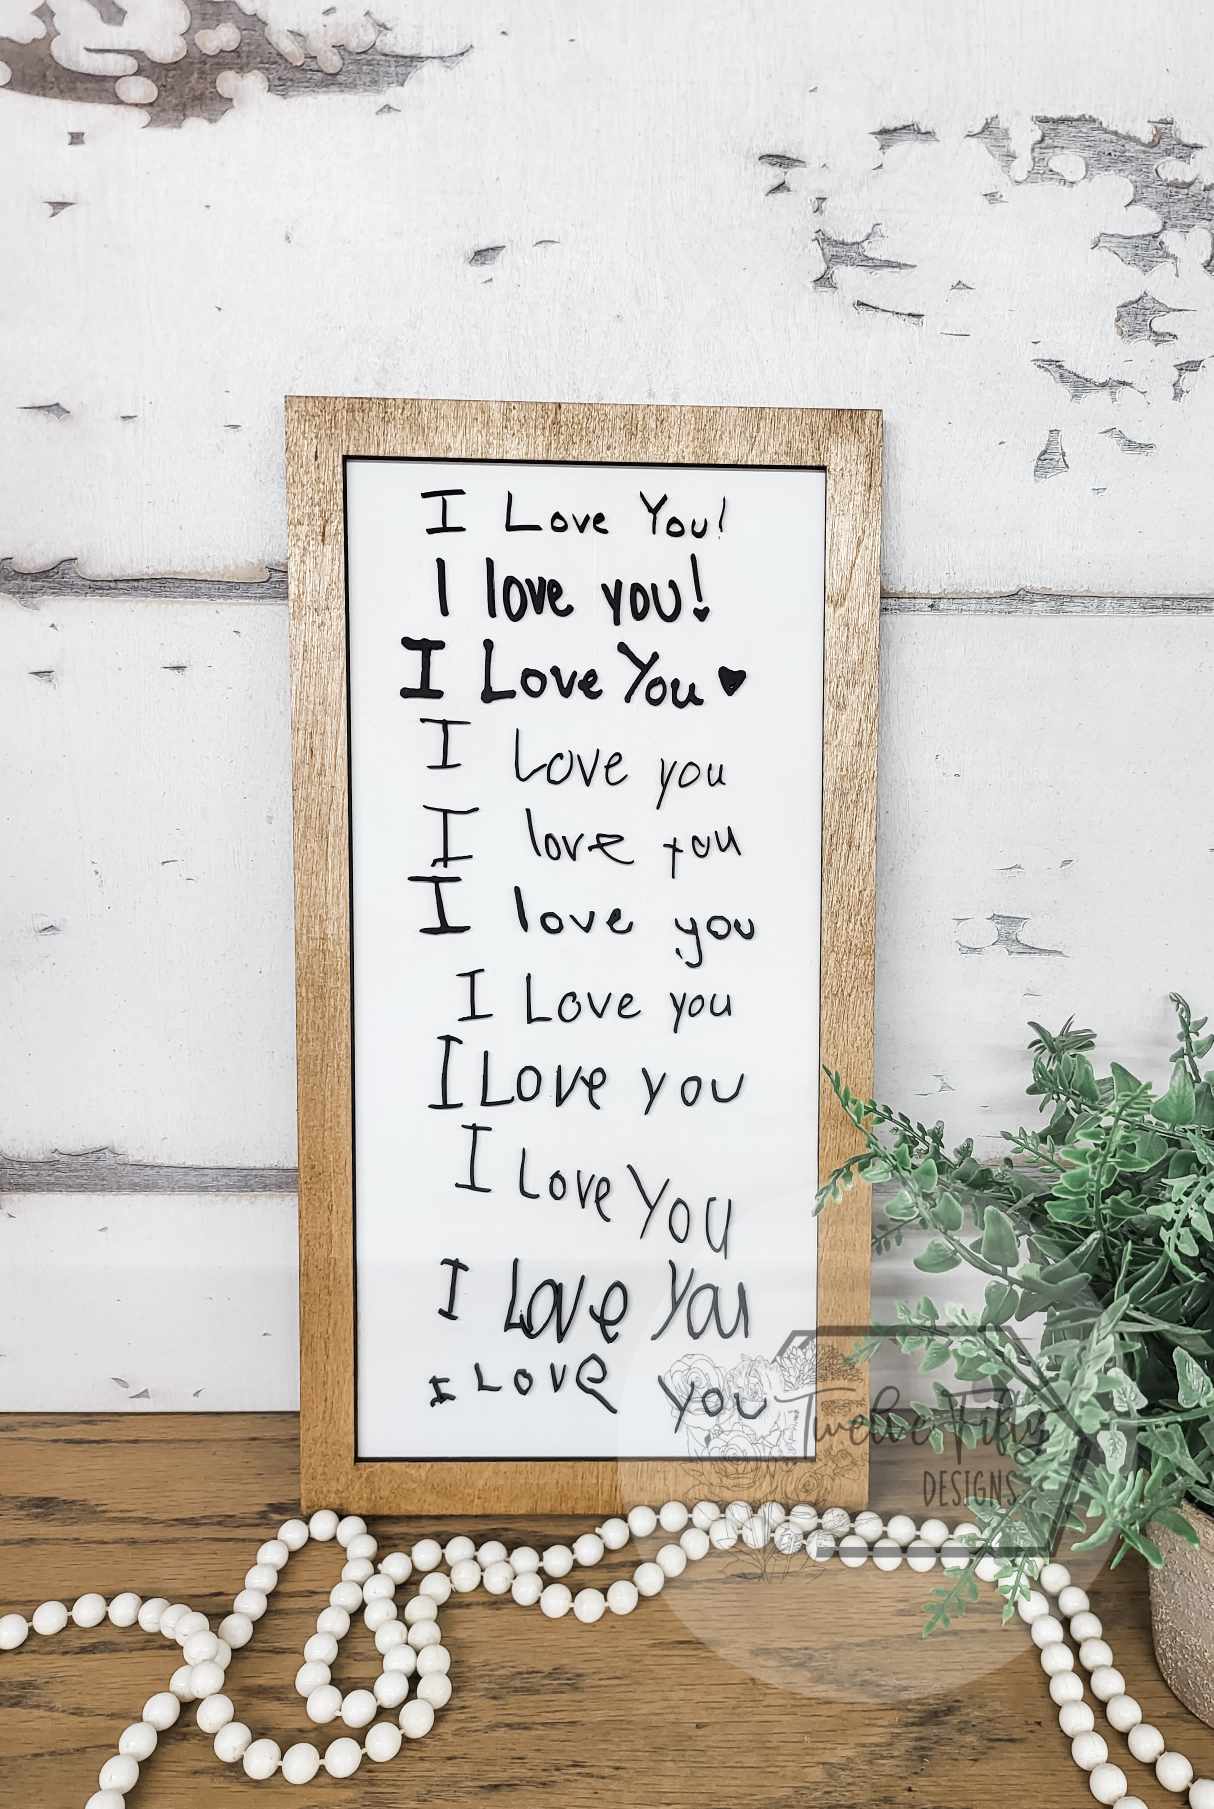 I Love You!
I love you!
I Love You ♥
I Love you
I love you
I love you
I Love you
I Love you
I Love You
I Love You
I Love you
Twelve Fifty
DESIGNS